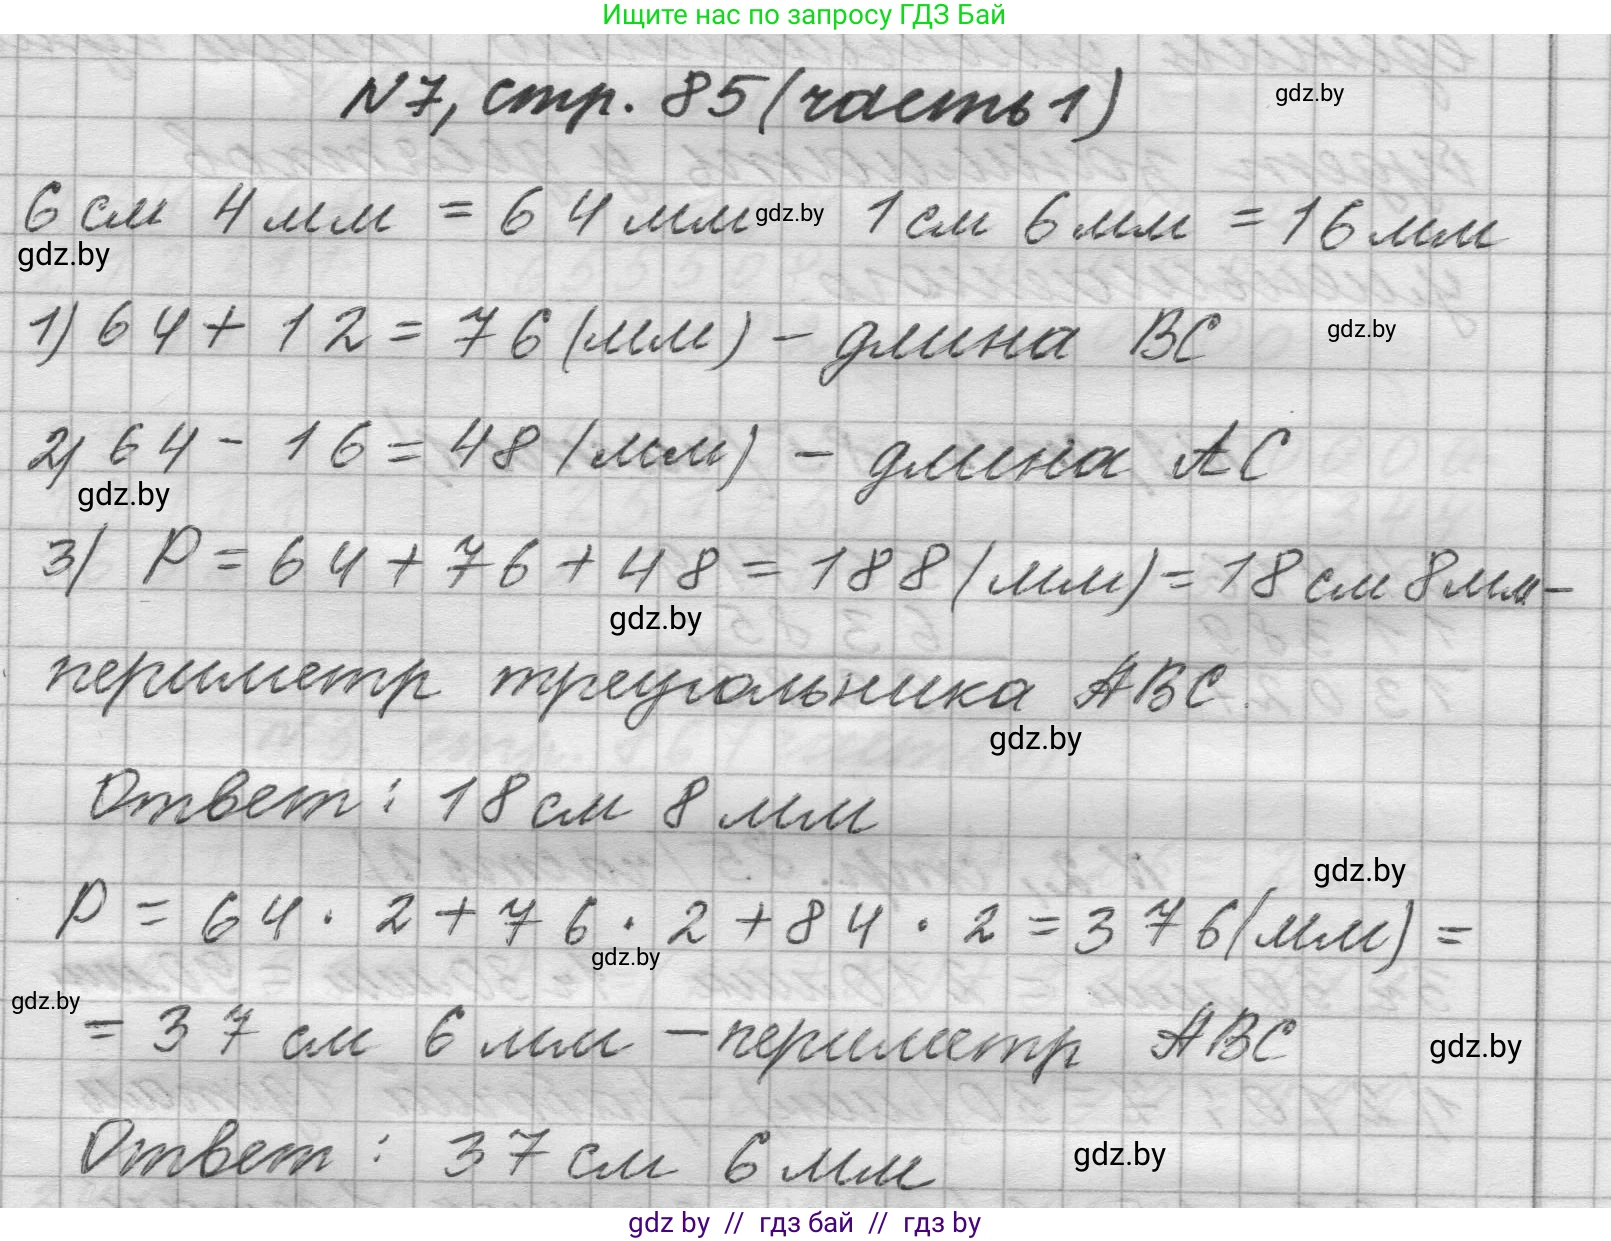 Ищите нас по запросу ГДЗ Бай
N7, стр. 85 (часть 1)
gdz.by
6 см 4 мм = 64 мм gdz.by 1 см 6 мм = 16 мм
gdz.by
1) 64 + 12 = 76 (мм) - длина BC
gdz.by
2) 64 - 16 = 48 (мм) - длина AC
gdz.by
3) P = 64 + 76 + 48 = 188 (мм) = 18 см 8 мм -
gdz.by
периметр треугольника ABC.
gdz.by
Ответ: 18 см 8 мм
gdz.by
P = 64 · 2 + 76 · 2 + 84 · 2 = 376 (мм) =
gdz.by
gdz.by
= 37 см 6 мм - периметр ABC
gdz.by
Ответ: 37 см 6 мм
gdz.by
gdz by // гдз бай // гдз by